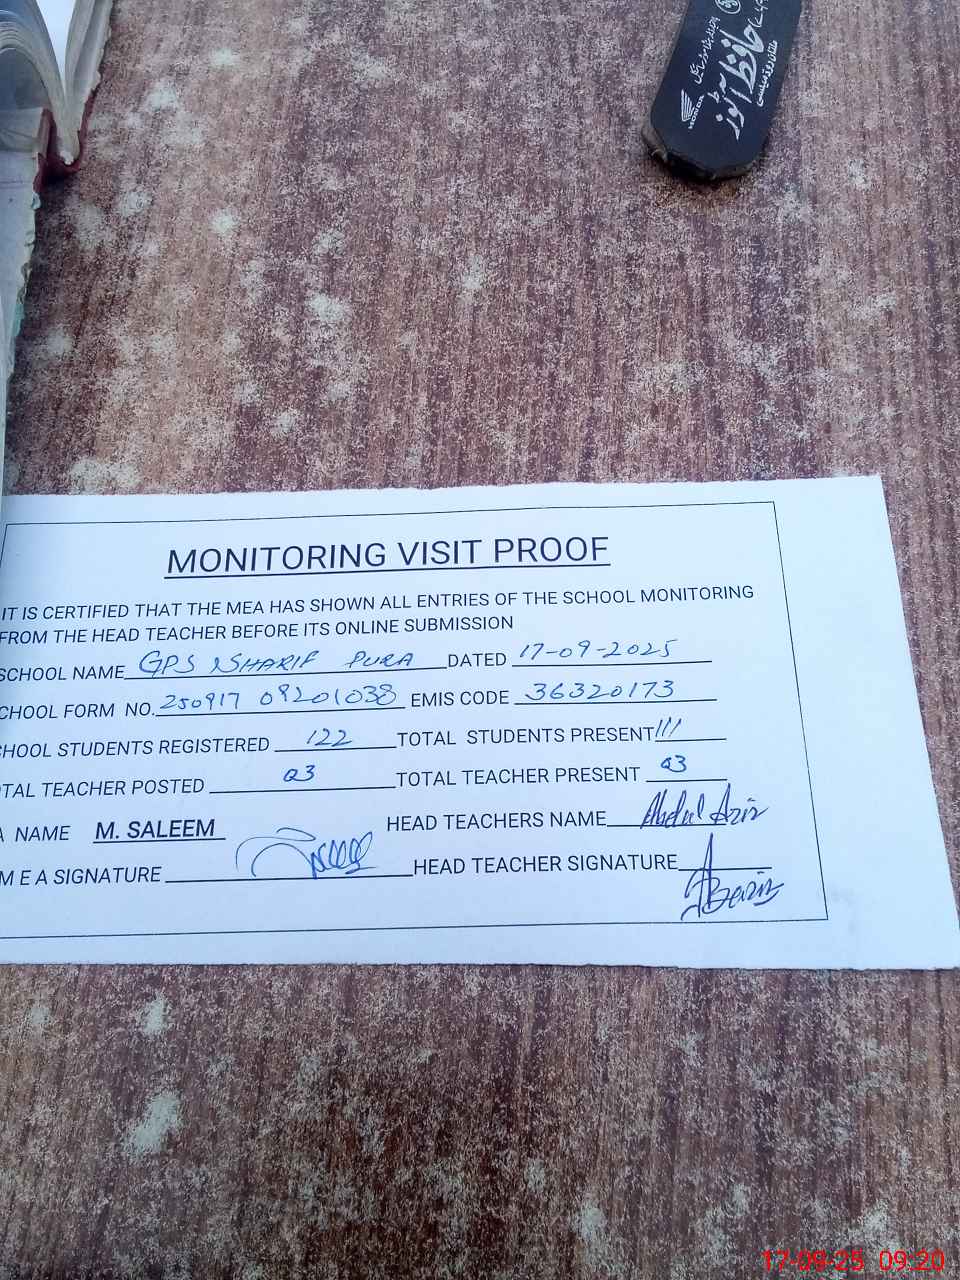 HONDA
حافظ
MONITORING VISIT PROOF
IT IS CERTIFIED THAT THE MEA HAS SHOWN ALL ENTRIES OF THE SCHOOL MONITORING
FROM THE HEAD TEACHER BEFORE ITS ONLINE SUBMISSION
SCHOOL NAME GPS SHARIF PURA DATED 17-09-2025
CHOOL FORM NO. 250917 09201038 EMIS CODE 36320173
CHOOL STUDENTS REGISTERED 122 TOTAL STUDENTS PRESENT 111
TAL TEACHER POSTED 03 TOTAL TEACHER PRESENT 03
A NAME M. SALEEM HEAD TEACHERS NAME Abdul Aziz
M E A SIGNATURE HEAD TEACHER SIGNATURE
17-09-25 09:20